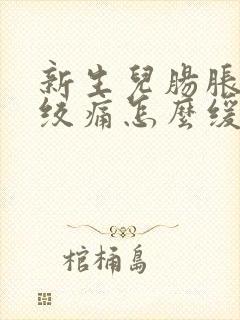 新生兒腸脹
絞痛怎麼緩
棺桶島